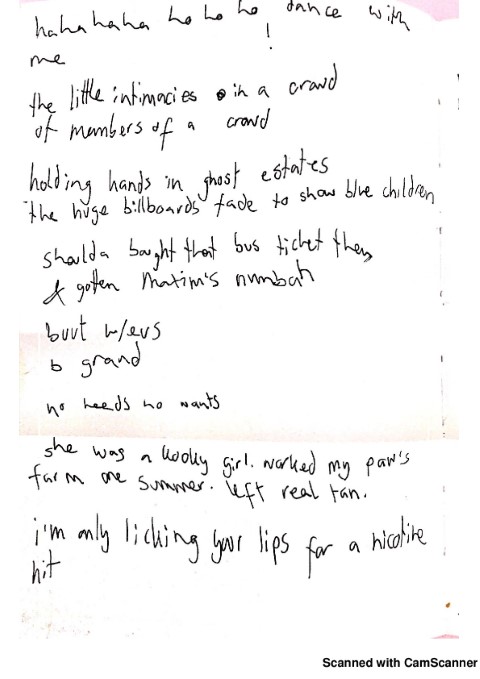 hahahahaha ho ho ho dance with
me !
the little intimacies in a crowd
of members of a crowd
holding hands in ghost estates
the huge billboards fade to show blue children
shoulda bought that bus ticket then
& gotten Maxim's numbah
buut w/evs
b grand
no needs no wants
she was a kooky girl. worked my paw's
farm one summer. left real tan.
i'm only licking your lips for a nicotine
hit
Scanned with CamScanner